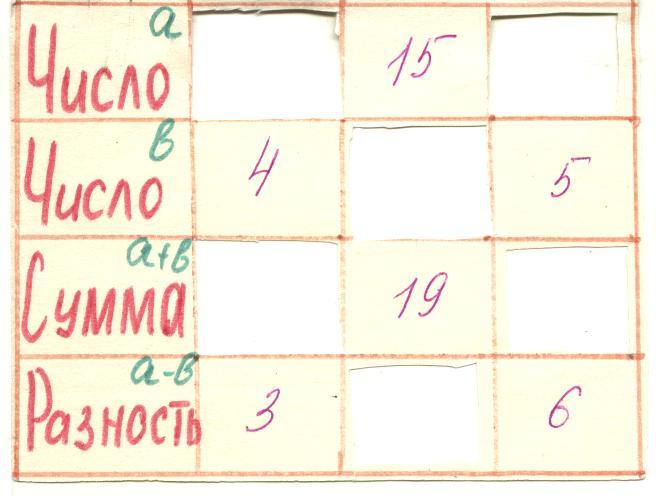 а
Число 15
в
Число 4 5
а+в
Сумма 19
а-в
Разность 3 6